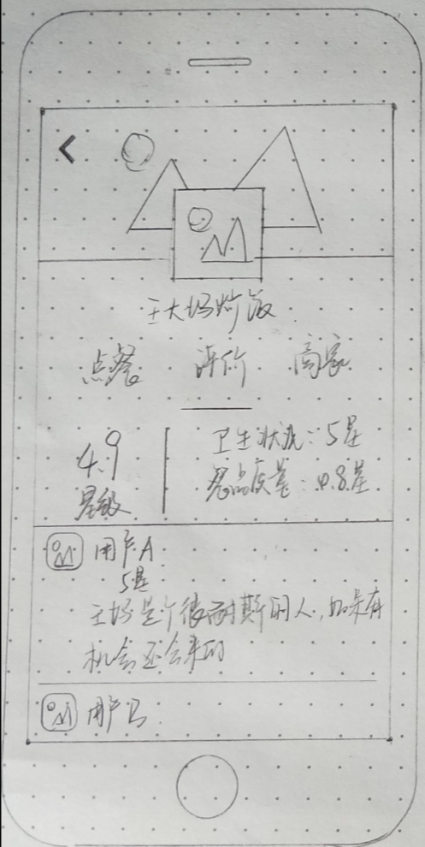 王大妈炒饭
点餐 评价 商家
4.9
星级
卫生状况：5星
菜品质量：4.8星
用户A
5星
王妈是个很耐斯的人，如果有
机会还会来的
用户B